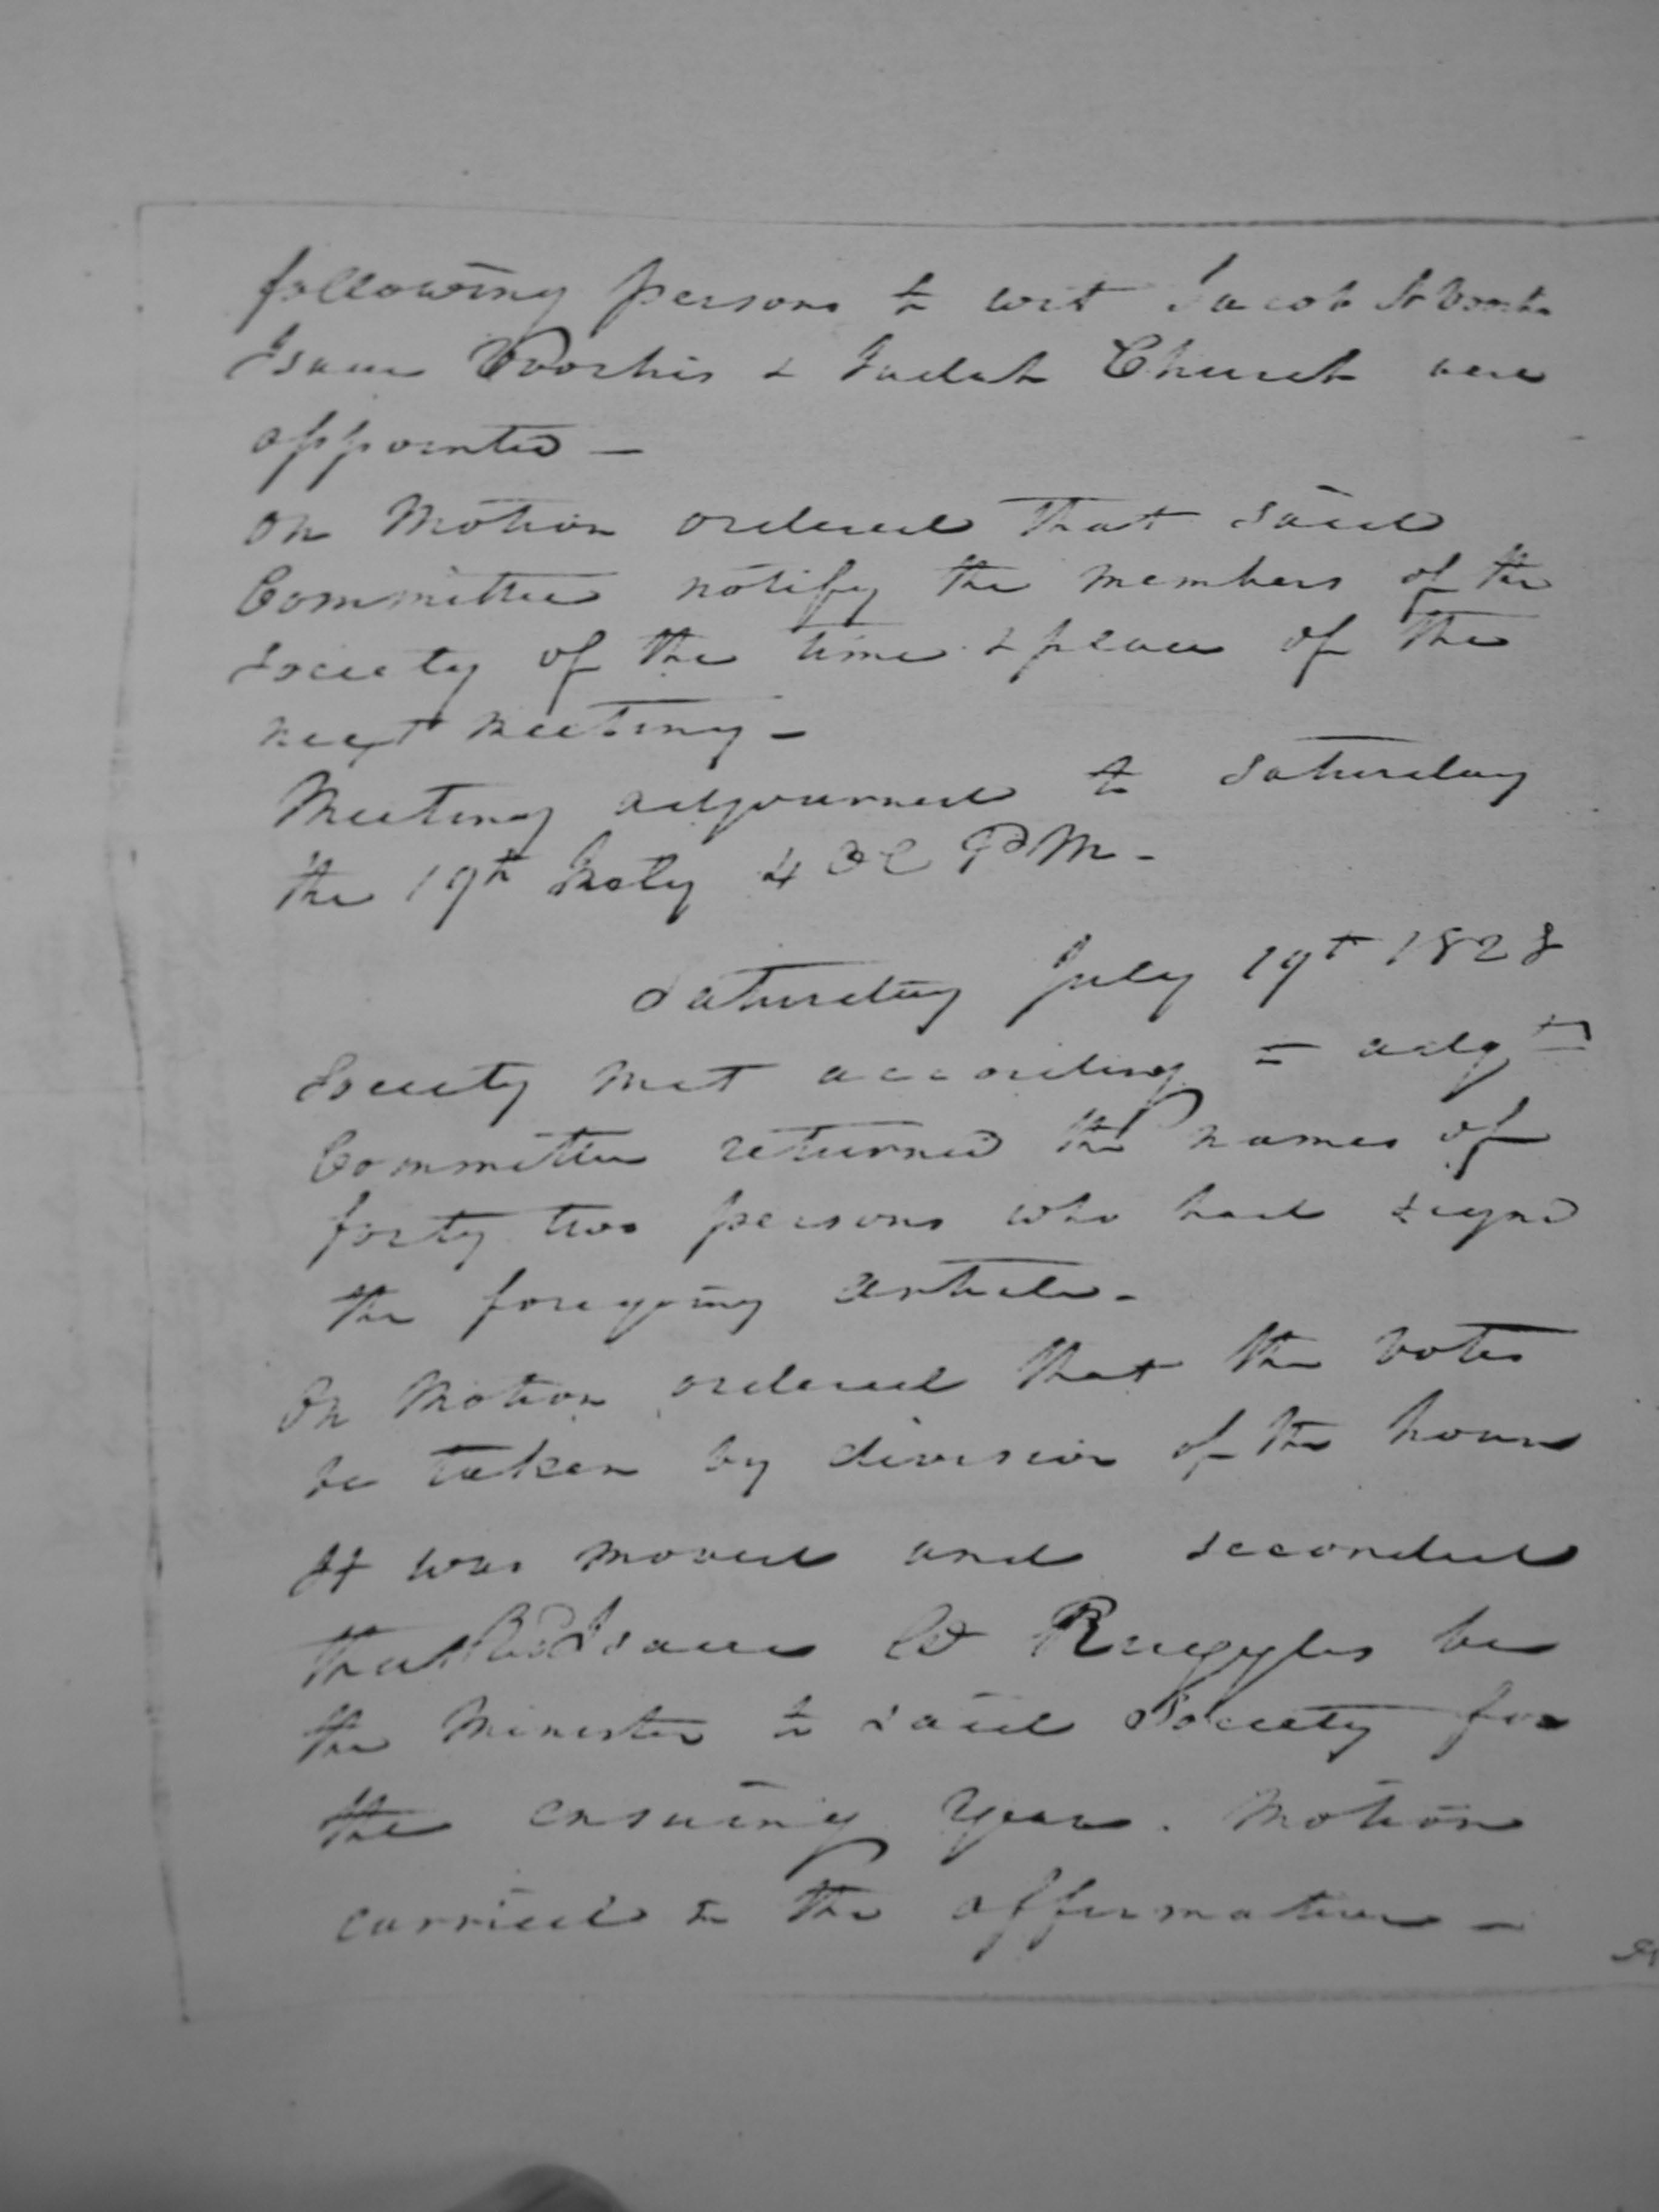 following persons to wit Jacob
Isaac Voorhis & Judah Church were
appointed —
On Motion ordered that said
Committee notify the members of the
Society of the time & place of the
next meeting —
Meeting adjourned to Saturday
the 19th 4 OC PM —
Saturday July 19th 1828
Society met according to adjt
Committee returned the names of
forty two persons who had signd
the foregoing article —
On Motion ordered that the votes
be taken by division of the house
It was moved and seconded
that Revd Isaac W Ruggles be
the Minister to said Society for
the ensuing year. Motion
carried in the affirmative —